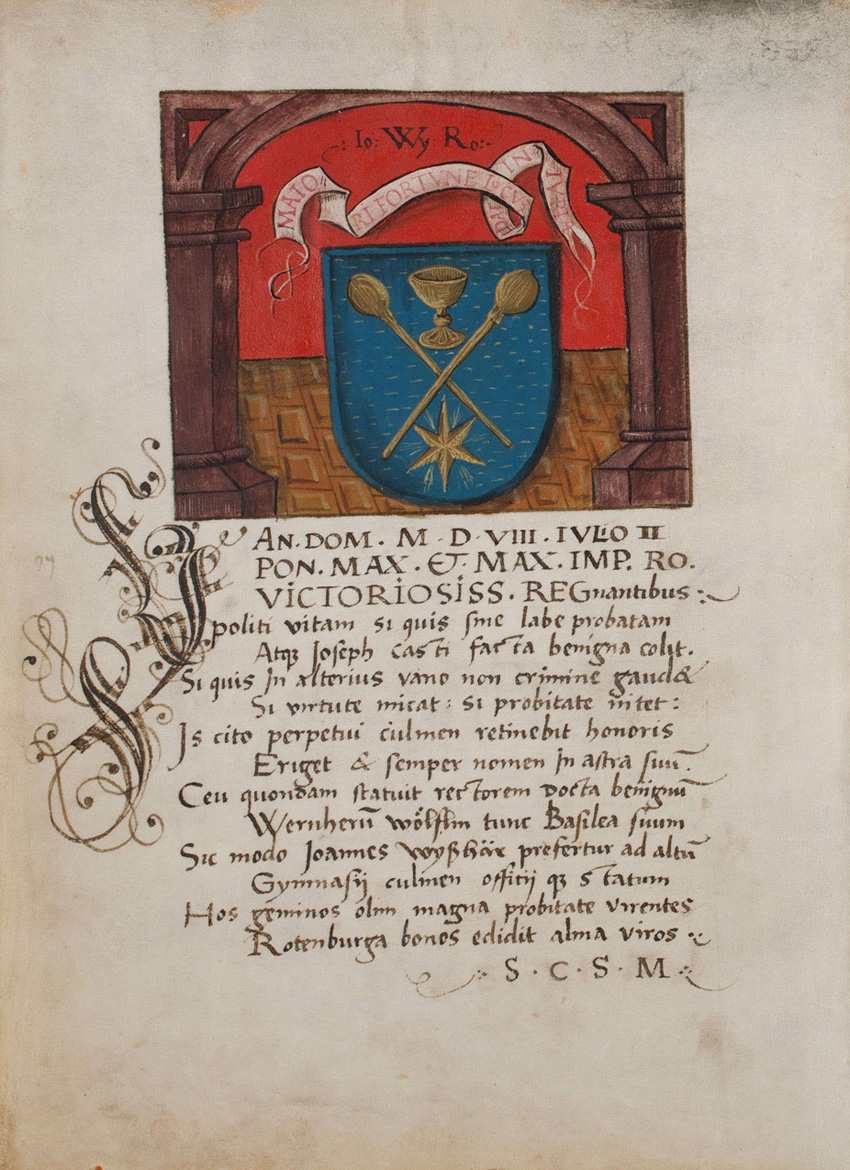 .: Io: Wy: Ro:.
MAIORI FORTVNE LOCVS
AN. DOM. M. D. VIII. IVLIO II
PON. MAX. ET. MAX. IMP. RO.
VICTORIOSISS. REGnantibus :
Hippoliti vitam si quis sine labe probatam
Atqꝫ Joseph casti facta benigna colit.
Si quis In alterius vano non crimine gaudet
Si virtute micat: si probitate nitet:
Is cito perpetui culmen retinebit honoris
Eriget & semper nomen In astra suū.
Ceu quondam statuit rectorem docta benignū
Wernherū wölfflin tunc Basilea suum
Sic modo Joannes wyßhöre prefertur ad altū
Gymnasij culmen offitij qꝫ statum
Hos geminos olim magna probitate virentes
Rotenburga bonos edidit alma viros .
S . C . S . M